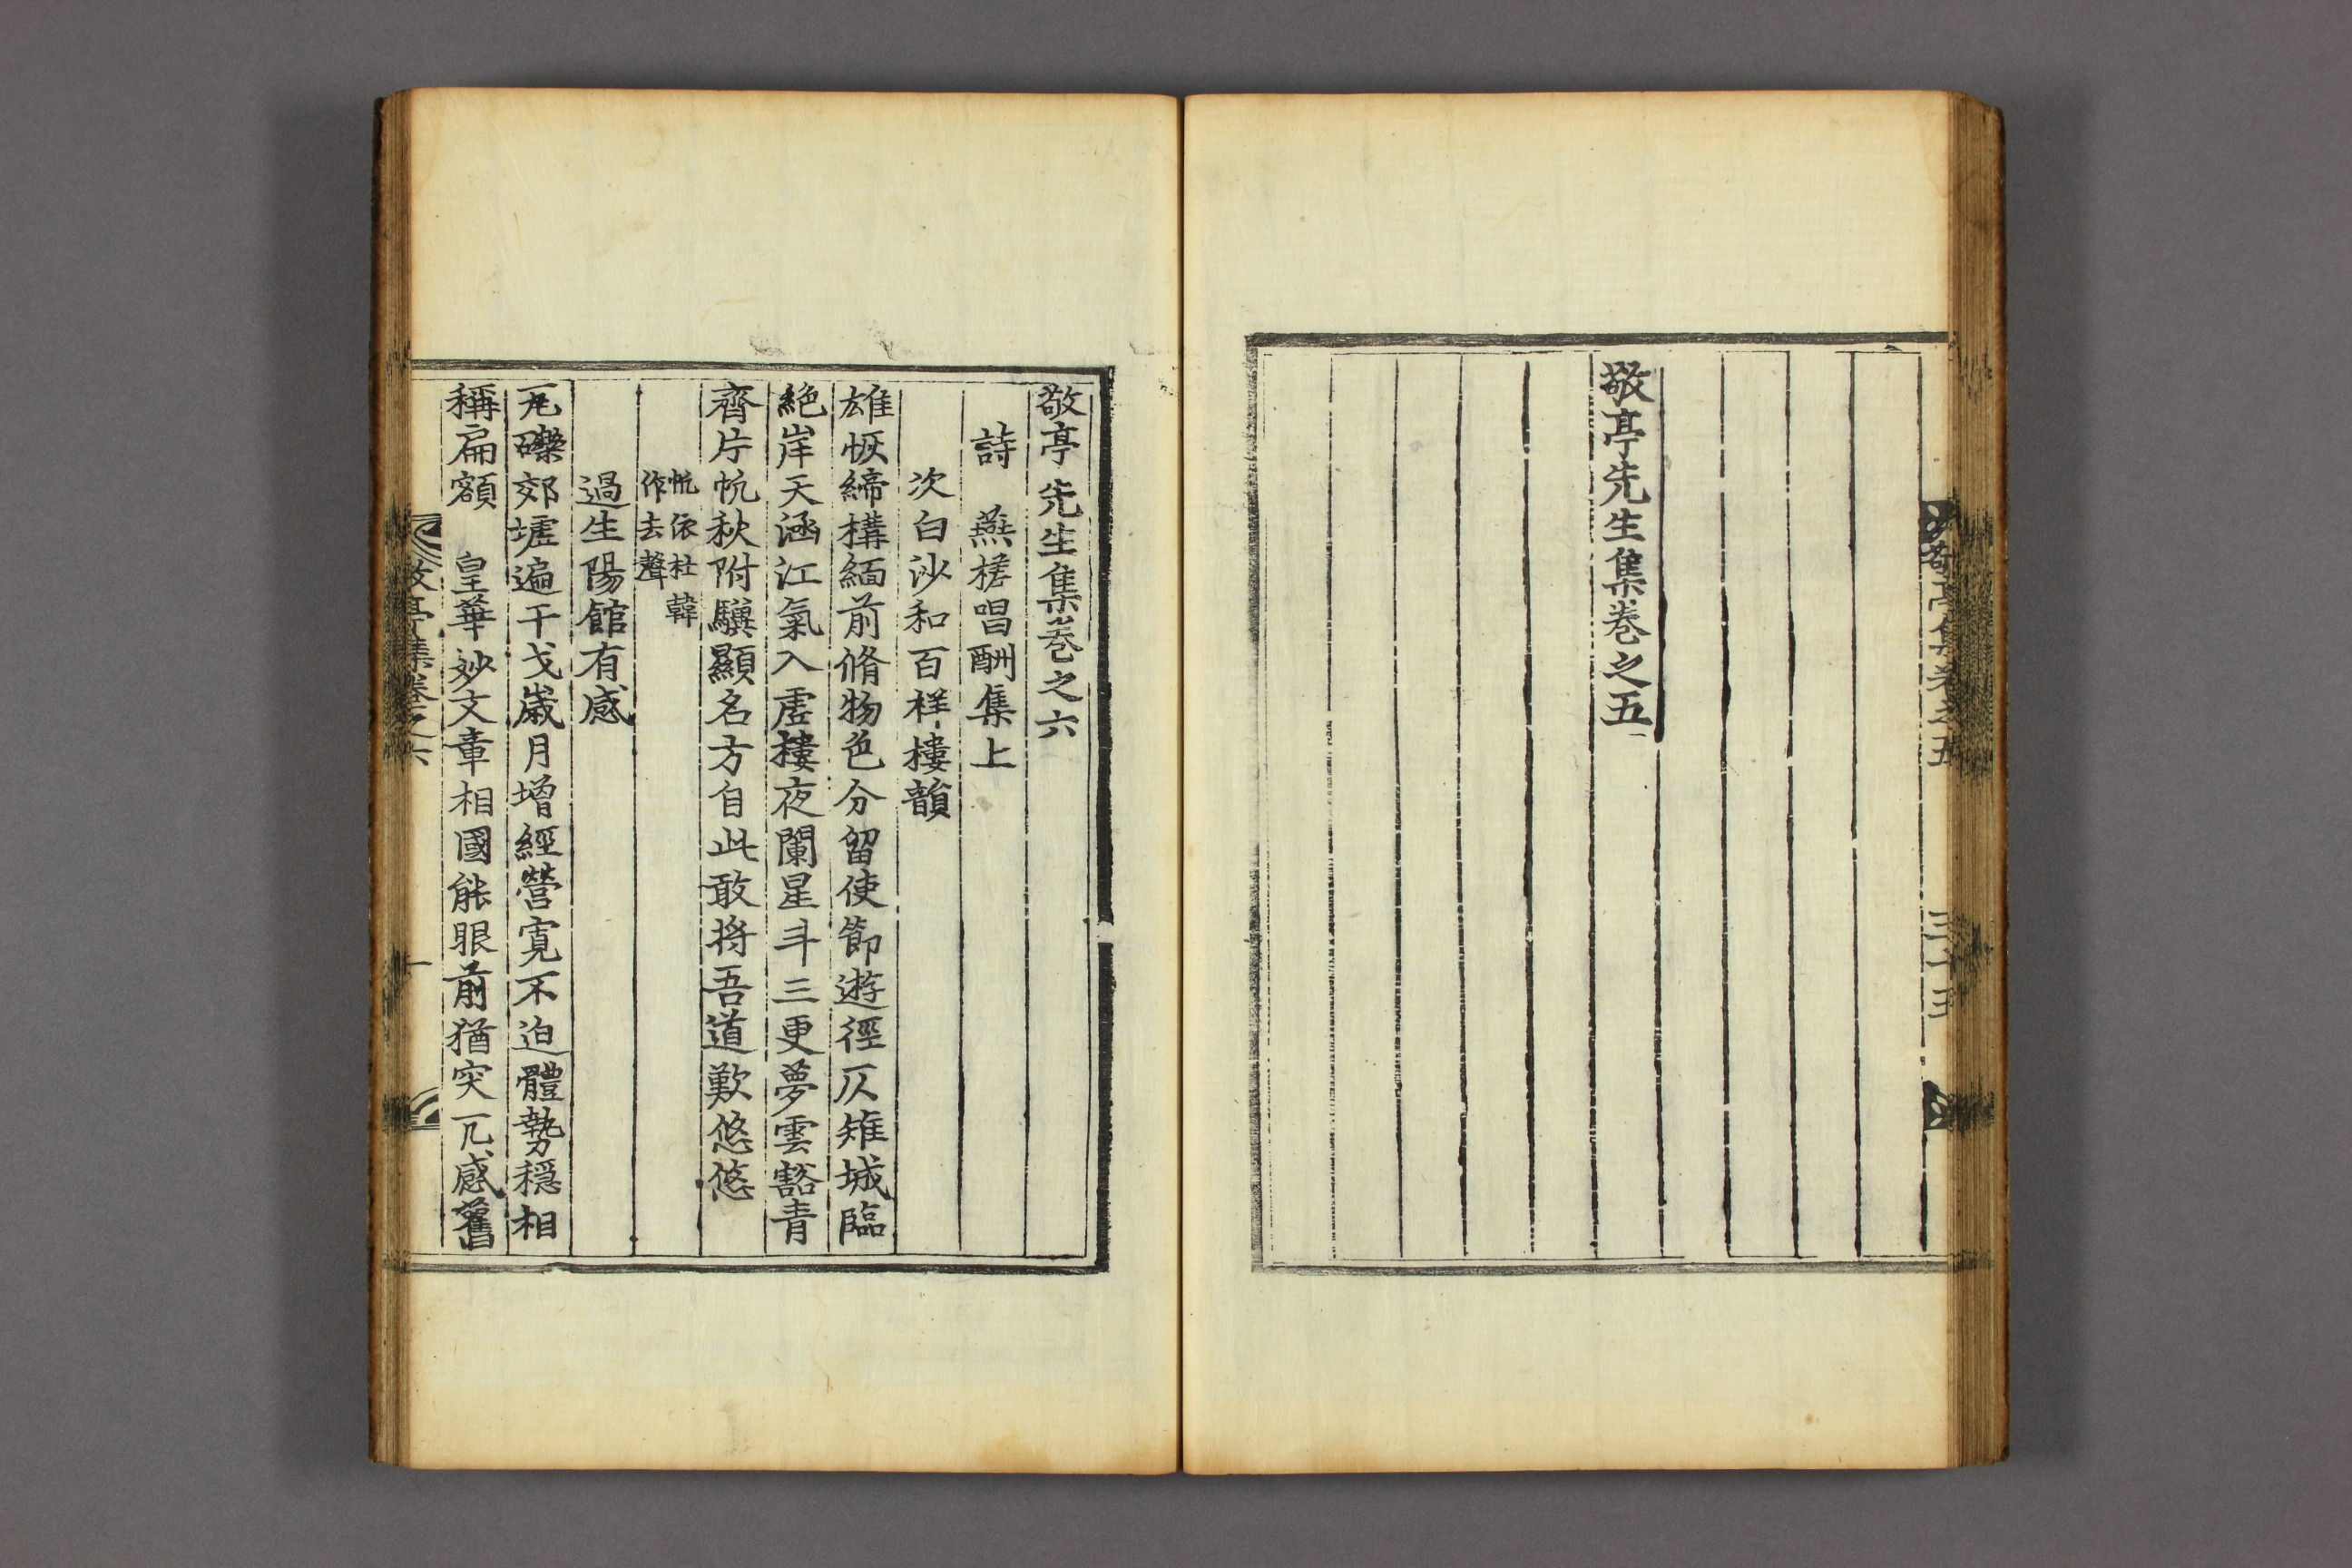 敬亭先生集卷之五
敬亭集卷之五
三十五
敬亭先生集卷之六
詩 燕槎唱酬集上
次白沙和百祥樓韻
雄恢締構緬前脩物色分留使節遊徑仄雉城臨
絶岸天涵江氣入虛樓夜闌星斗三更夢雲豁青
齊片帆秋附驥顯名方自此敢將吾道歎悠悠
帆依杜韓
作去聲
過生陽館有感
瓦礫郊墟遍干戈歲月增經營寬不迫體勢穩相
稱扁額 皇華妙文章相國能眼前猶突兀感舊
敬亭集卷之六
一